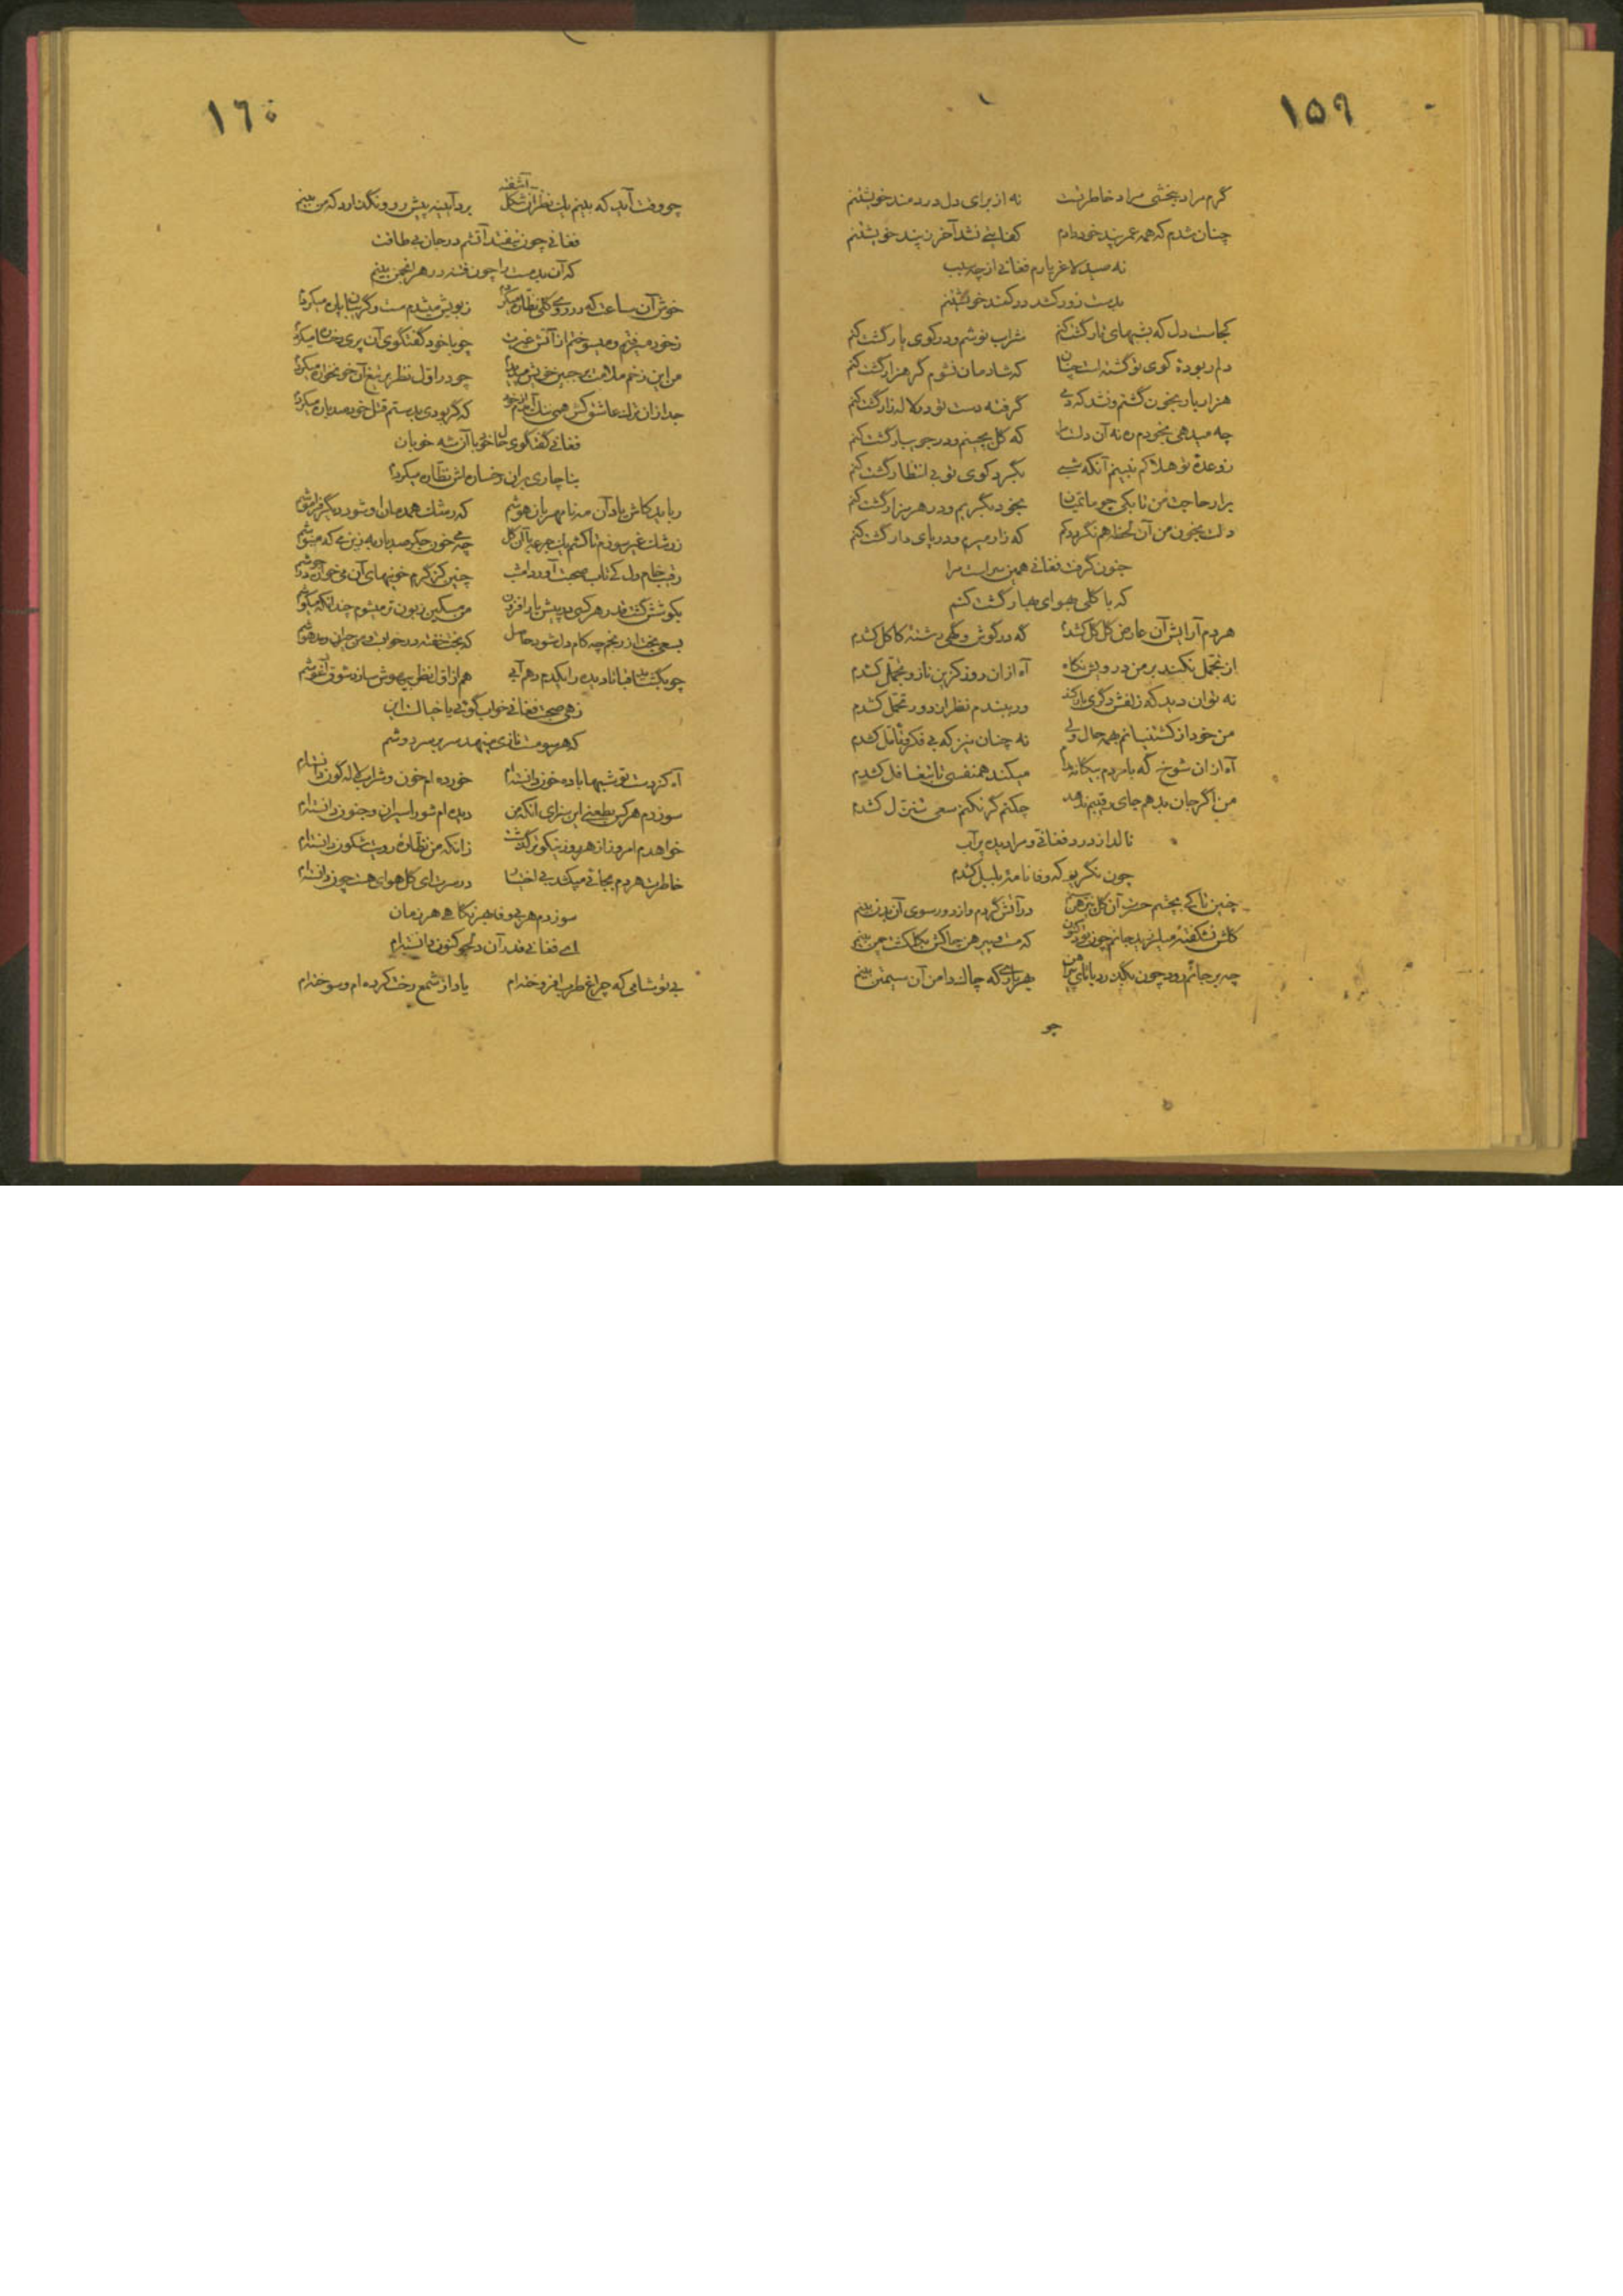 ١٥٩
گرم مراد نبخشی مراد خاطر تست نه از برای دل دردمند خویشتنم
چنان شدم که همه عمر پند خود دادم کفایتی نشد آخر ز پند خویشتنم
نه صید لاغر یارم فغانی از چه سبب
بدست زور کشد در کمند خویشتنم
کجاست دل که بشبهای تار گشت کنم شراب نوشم و در کوی یار گشت کنم
دلم ربودهٔ کوی تو گشته است چنان که شادمان نشوم گر هزار گشت کنم
هزار بار بخون گشتم و نشد که دمی گرفته دست تو در لاله زار گشت کنم
چه میدهی بخودم ره نه آن دلست مرا که گل بچینم و در جویبار گشت کنم
ز وعدهٔ تو هلاکم نبینم آنکه شبی بگرد کوی تو بی انتظار گشت کنم
برار حاجت من تا بکی چو ماتمیان بخود بگریم و در هر مزار گشت کنم
دلت بخون من آن لحظه هم نگردد گرم که زار میرم و در پای دار گشت کنم
جنون گرفت فغانی همین سزاست مرا
که با گلی بهوای بهار گشت کنم
هر دم آرایش آن عارض گل گل کشدم گه در گوش و گهی رشته کاکل کشدم
از تجمل نکند بر من درویش نگاه آه ازان روز کزین ناز و تجمل کشدم
نه توان دید که زلفش دگری باز کند ور ببندم نظر از دور تحمل کشدم
من خود از کشتنیانم بهمه حال ولی نه چنان نیز که بی فکر و تامل کشدم
آه ازان شوخ که با مردم بیگانه مدام میکند همنفسی تا بتغافل کشدم
من اگر جان بدهم جای رقیبم ندهد چکنم گر نکنم سعی تنزل کشدم
نالد از درد فغانی و مرا دیده پر آب
چون نگریم که وفا نامهٔ بلبل کشدم
چنین تا کی بچشم حسرت آن گل پیرهن بینم در آتش گردم و از دور سوی آن بدن بینم
گلش نشکفته میلرزید جانم چون بود اکنون که مست و پیرهن چاکش بگلگشت چمن بینم
چه بر جانم رود چون بگذرد با تای پیراهن بهر بادی که چاک دامن آن سیمتن بینم
چو
١٦٠
چو وقت آید که بینم یک نظر آن شکل آشفته برد آیینه پیش رو و نگذارد که من بینم
فغانی چون نیفتد آتشم در جان بی طاقت
که آن بدمست را چون فتنه در هر انجمن بینم
خوش آن ساعت که در روی گلی نظاره میکردم ز بویش میشدم مست و گریبان پاره میکردم
ز خود میرفتم و میسوختم از آتش غیرت چو با خود گفتگوی آن پری رخساره میکردم
من این زخم ملامت بر جبین خویش میدیدم چو در اول نظر بر تیغ آن خونخواره میکردم
جدا از آن ترک عاشق کش همی تنگ آمدم از خود که گر بودی بدستم قتل خود صد باره میکردم
فغانی گفتگوی حاجتی با آن شه خوبان
بناچاری بران رخساره اش نظاره میکردم
رباید کاش یاد آن مه نامهربان هوشم که رشک همدمان او شود دیگر فراموشم
ز رشک غیر سوزم تا کشم یک جرعه با آن گل چه می خون جگر صد بار به زین می که مینوشم
رقیب خام دل کی تاب صحبت آورد امشب چنین کز گرم خونیهای آن میخواره در جوشم
بکوشش گشت قدر هر کسی در پیش یار افزون من مسکین زبون تر میشوم چندانکه میکوشم
بسعی بخت از رنجم چه کام دل شود حاصل که بخت خفته در خوابست و من حیران و مدهوشم
چو بگشاید قبا نادیده رنگیدم دهم آبی هم از اول نظر بیهوش سازد شوق آغوشم
زهی صحبت فغانی خواب گوئی یا خیالست این
که سرو مست نازی مینهد سر بر سر دوشم
آه کز دست تو شبها باده خون دانسته ام خورده ام خون و شراب لاله گون دانسته ام
سوزدم هر کس بطعنی این سزای آنکه من دیده ام شور اسیران و جنون دانسته ام
خواهدم امروز از هر روز نیکوتر گذشت زانکه من نظارهٔ رویت شگون دانسته ام
خاطرت هر دم بجائی میکشد بی اختیار در سرت ای گل هوای هست چون دانسته ام
سوزدم هر بی وفا بهر نگاهی هر زمان
ای فغانی قدر آن دلجو کنون دانسته ام
بی تو شامی که چراغ طرب افروخته ام یاد از شمع رخت کرده ام و سوخته ام